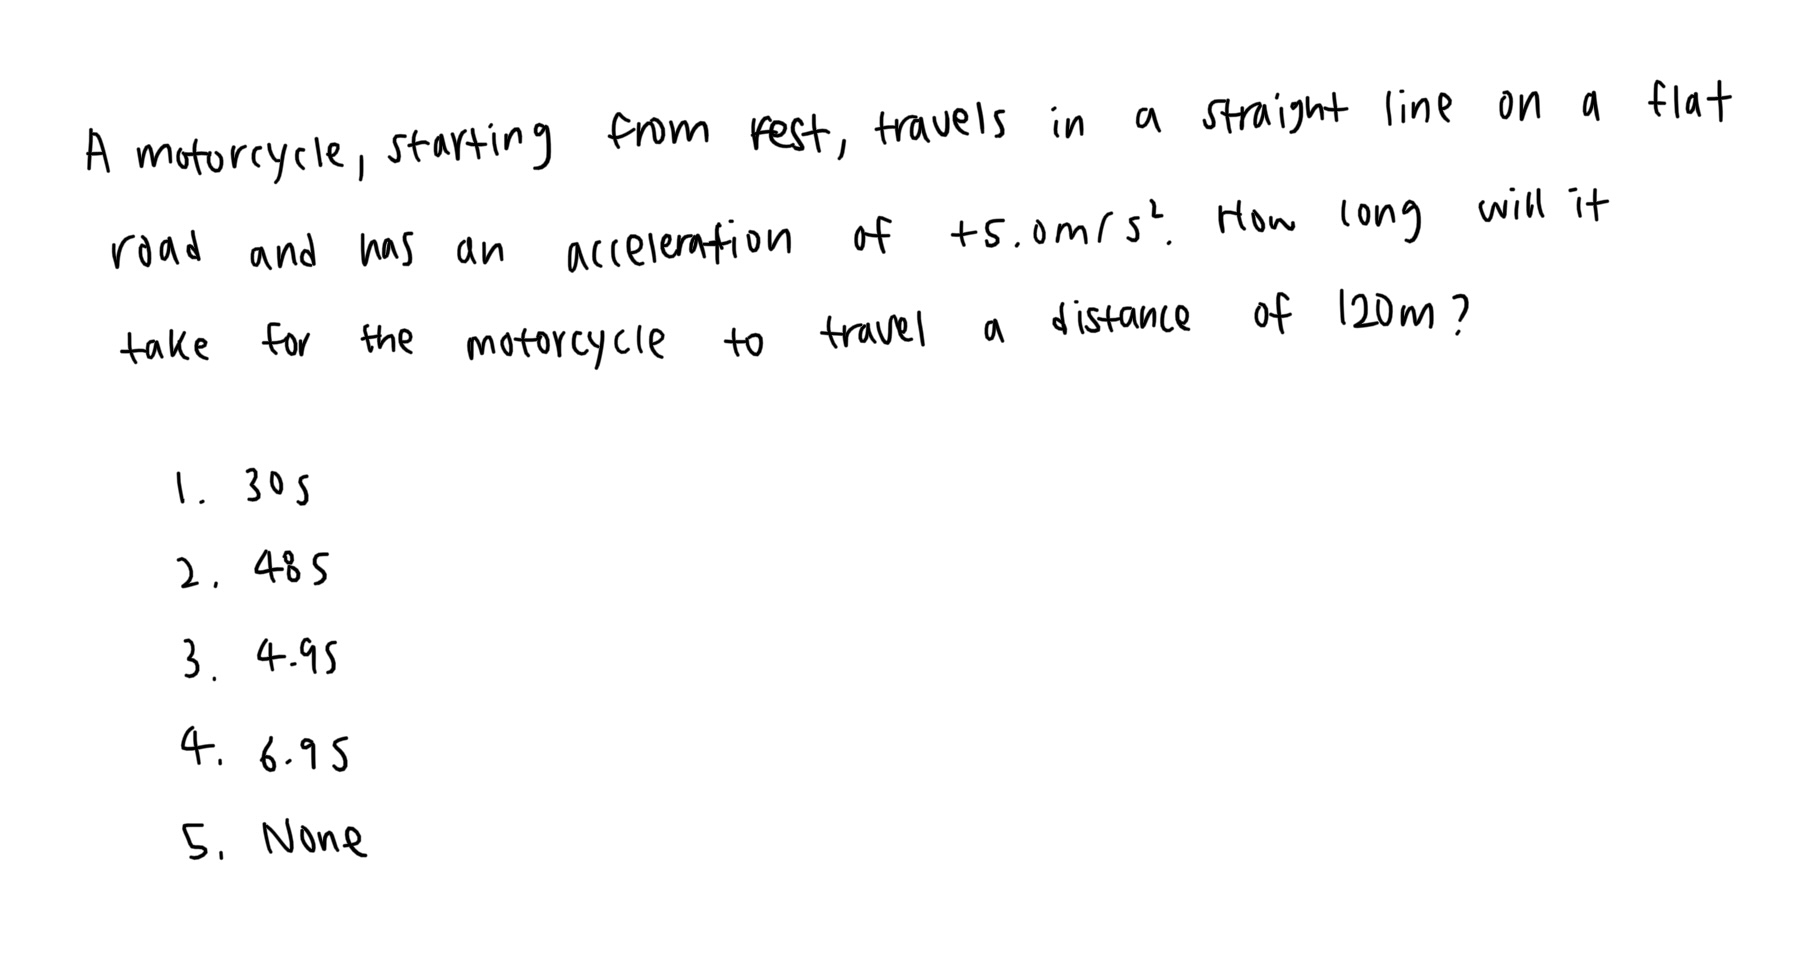 A motorcycle, starting from rest, travels in a straight line on a flat
road and has an acceleration of +5.0m/s². How long will it
take for the motorcycle to travel a distance of 120m?
1. 30s
2. 48s
3. 4.9s
4. 6.9s
5. None